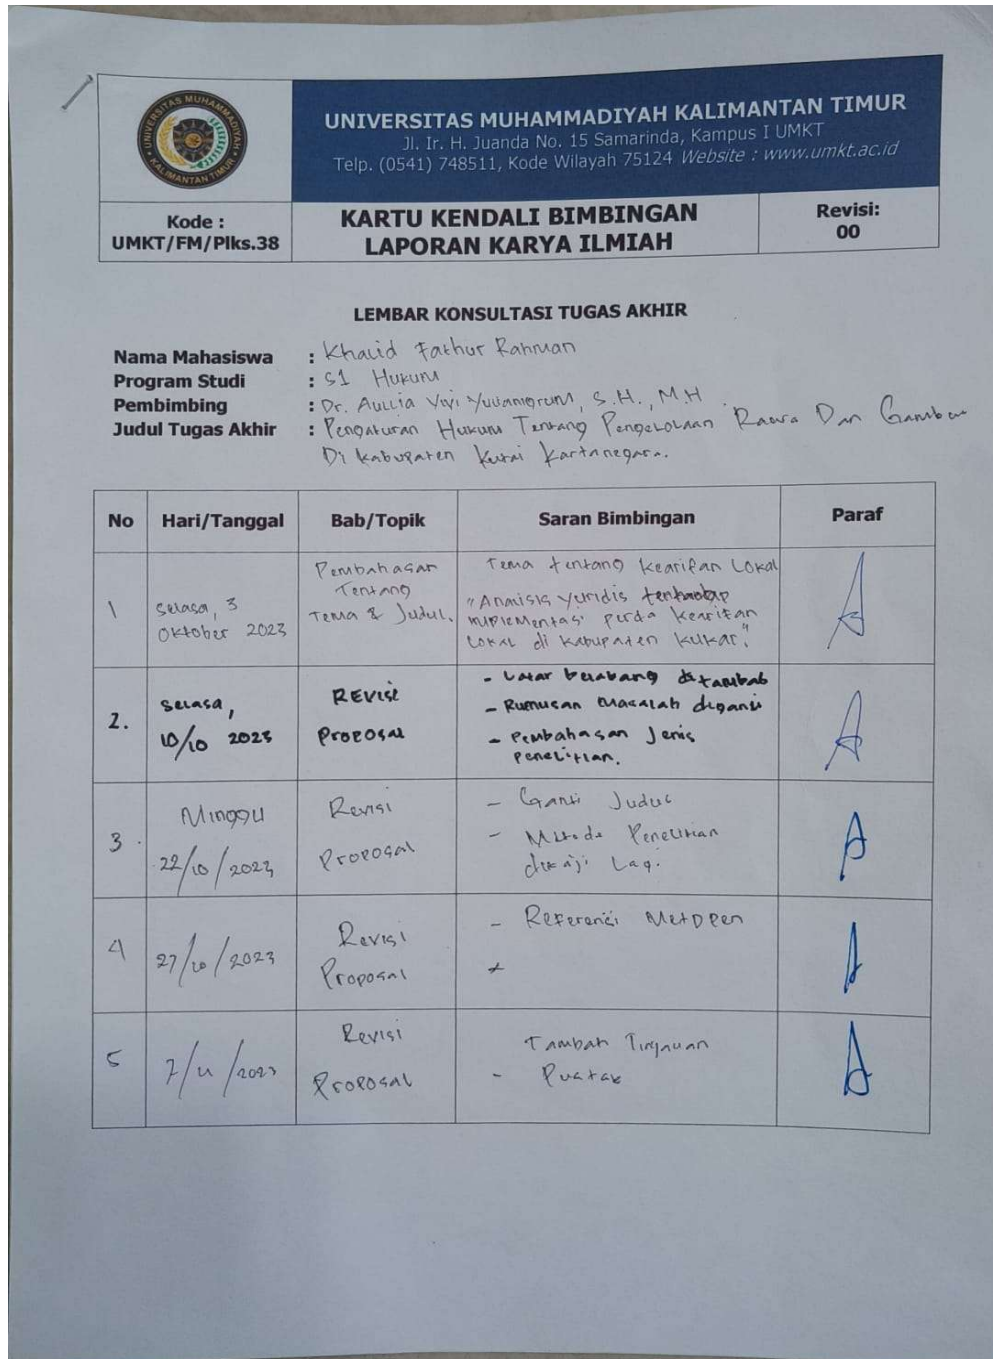 UNIVERSITAS MUHAMMADIYAH
KALIMANTAN TIMUR
UNIVERSITAS MUHAMMADIYAH KALIMANTAN TIMUR
Jl. Ir. H. Juanda No. 15 Samarinda, Kampus I UMKT
Telp. (0541) 748511, Kode Wilayah 75124 Website : www.umkt.ac.id
Kode :
UMKT/FM/Plks.38
KARTU KENDALI BIMBINGAN
LAPORAN KARYA ILMIAH
Revisi:
00
LEMBAR KONSULTASI TUGAS AKHIR
Nama Mahasiswa : Khalid Fathur Rahman
Program Studi : S1 Hukum
Pembimbing : Dr. Aullia Vivi Yulianingrum, S.H., M.H
Judul Tugas Akhir : Pengaturan Hukum Tentang Pengelolaan Rawa Dan Gambut
Di Kabupaten Kutai Kartanegara.
No Hari/Tanggal Bab/Topik Saran Bimbingan Paraf
1
Selasa, 3
Oktober 2023
Pembahasan
Tentang
Tema & Judul.
Tema tentang Kearifan Lokal
"Analisis Yuridis terhadap
implementasi perda Kearifan
Lokal di Kabupaten Kukar."
2.
Selasa,
10/10 2023
Revisi
Proposal
- Latar belakang ditambah
- Rumusan Masalah diganti
- Pembahasan Jenis
Penelitian.
3.
Minggu
22/10/2023
Revisi
Proposal
- Ganti Judul
- Metode Penelitian
dikaji Lagi.
4
27/10/2023
Revisi
Proposal
- Referensi Metopen
5
7/11/2023
Revisi
Proposal
Tambah Tinjauan
- Pustak